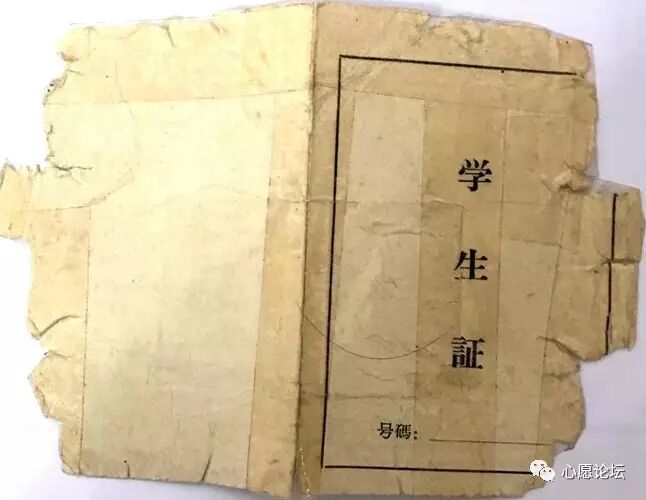 学
生
証
号碼：
心愿论坛